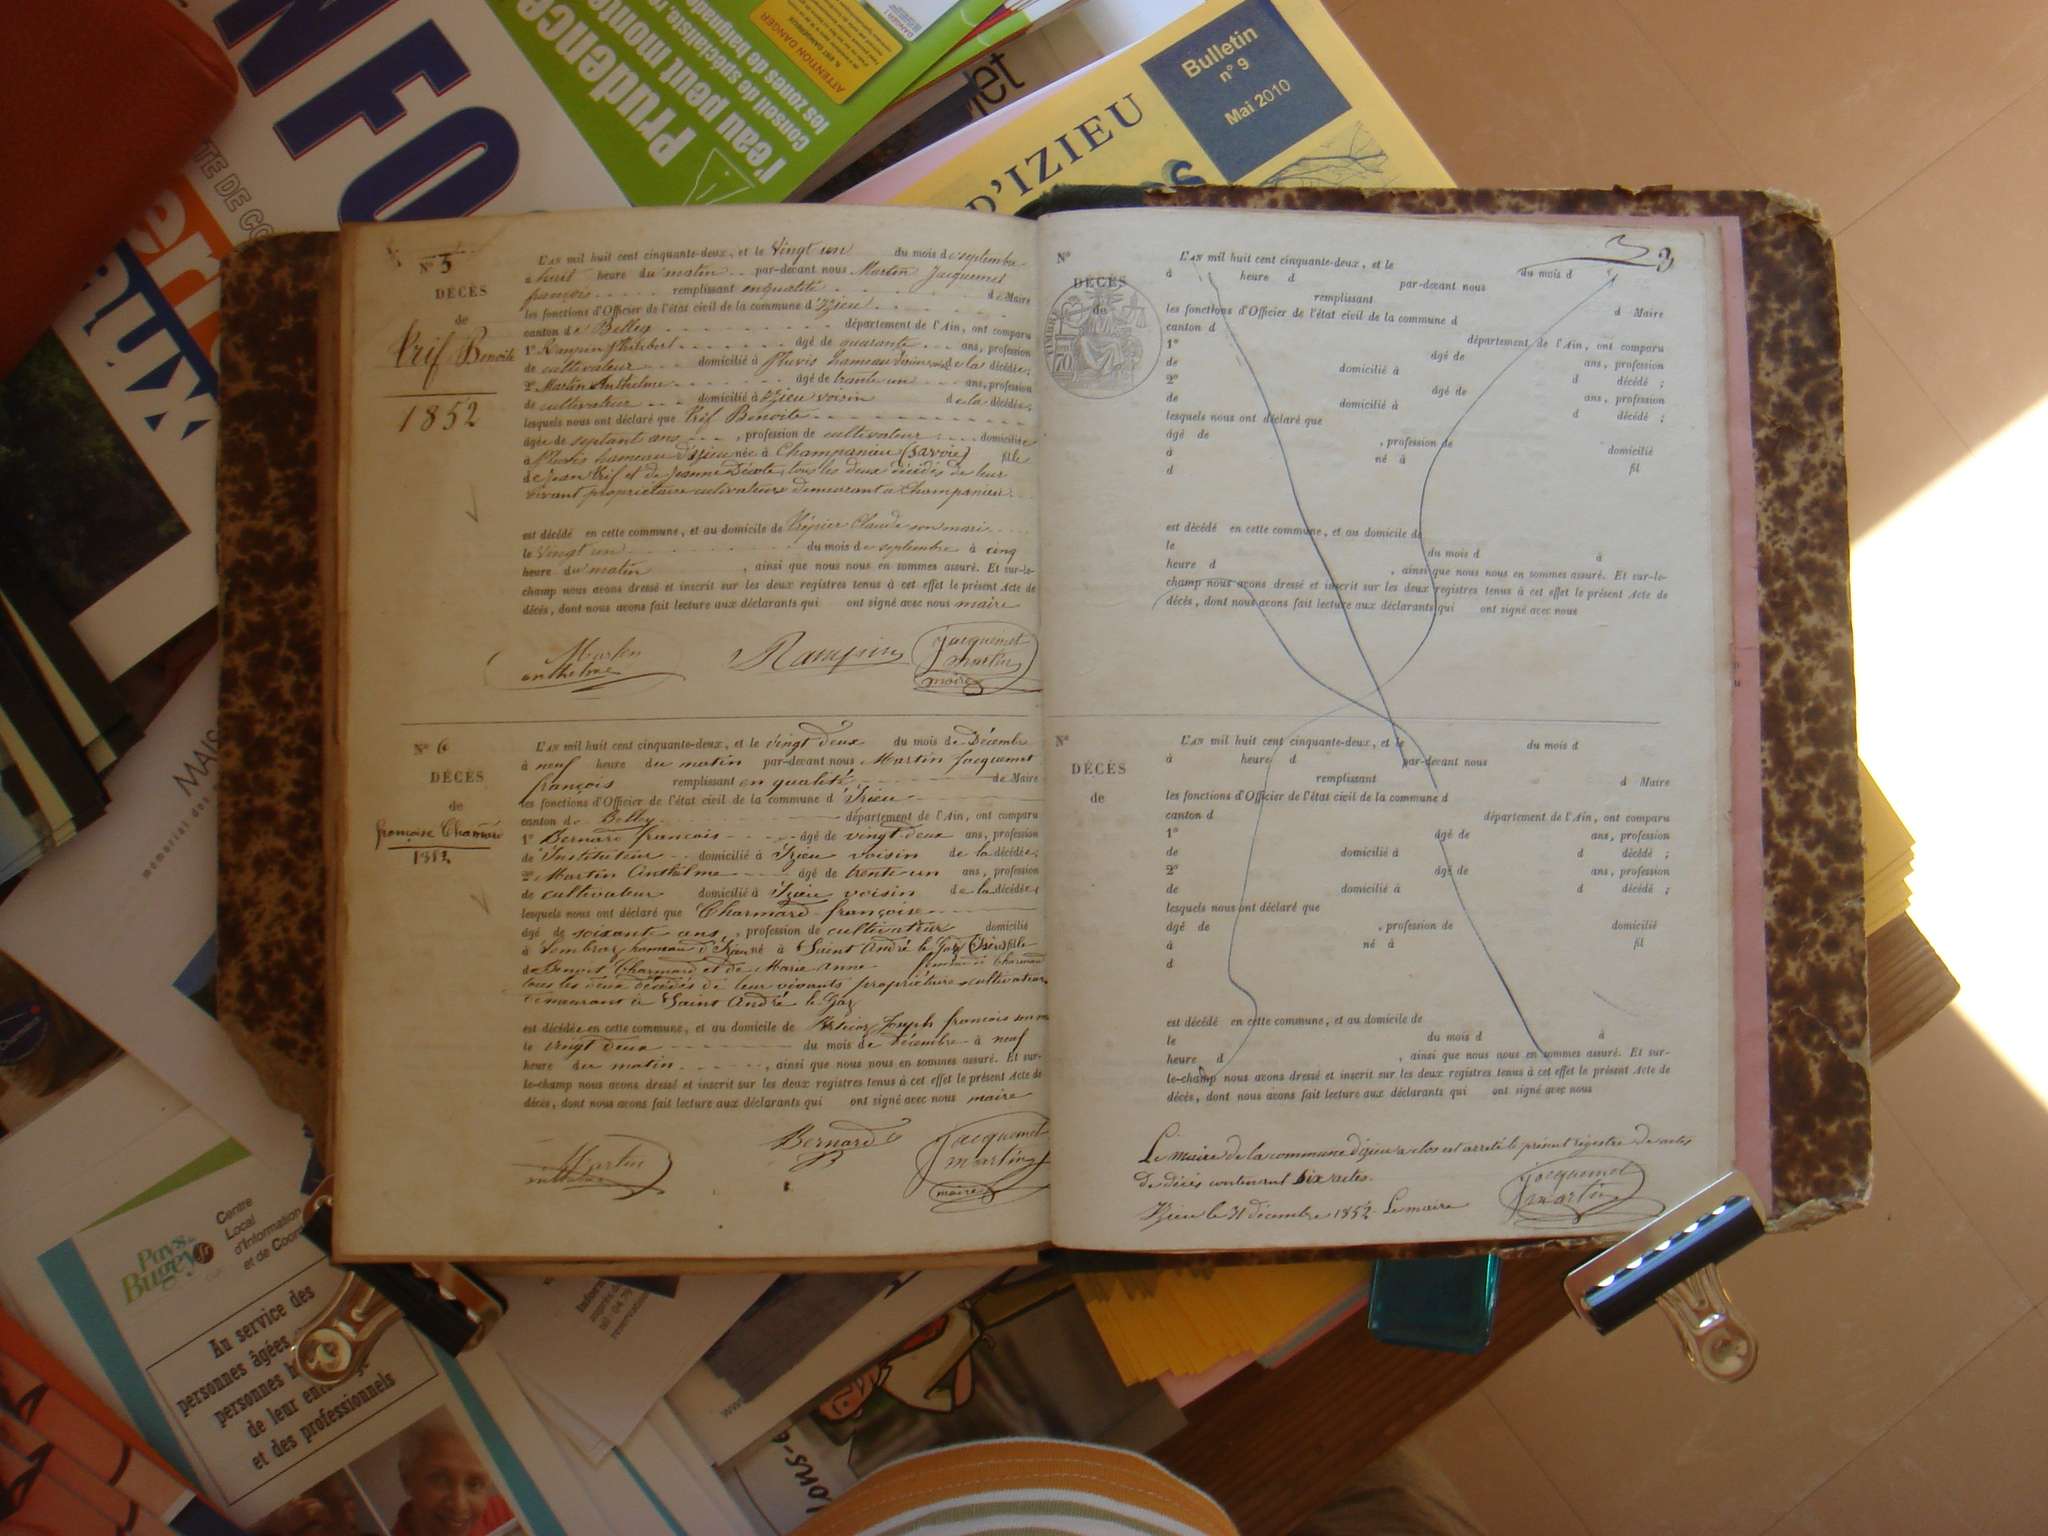 NFO
Prudence
l'eau peut monte
Conseil de spécialiste, re
les zones de baignade
ATTENTION DANGER
Bulletin
n° 9
Mai 2010
D'IZIEU
N° 5
DÉCÈS
de
Vrif Benoite
1852
L'AN mil huit cent cinquante-deux, et le Vingt un du mois de septembre
à huit heure du matin par-devant nous Martin Jacquemet
françois remplissant en qualité de Maire
les fonctions d'Officier de l'état civil de la commune d'Izieu
canton de Belley département de l'Ain, ont comparu
1° Rampin Philibert âgé de quarante ans, profession
de cultivateur domicilié à Pluvis hameau d'izieu de la décédée;
2° Martin Anthelme âgé de trente un ans, profession
de cultivateur domicilié à Izieu voisin de la décédée;
lesquels nous ont déclaré que Vrif Benoite
âgée de septant ans, profession de cultivateur domiciliée
à Pluvis hameau d'izieu née à Champanieu (Savoie) fille
de Jean Vrif et de Jeanne tous les deux décédés de leur
vivant propriétaire cultivateurs demeurant à Champanieu
est décédé en cette commune, et au domicile de Trépier Claude son mari
le vingt un du mois de septembre à cinq
heure du matin, ainsi que nous nous en sommes assuré. Et sur-le-
champ nous avons dressé et inscrit sur les deux registres tenus à cet effet le présent Acte de
décès, dont nous avons fait lecture aux déclarants qui ont signé avec nous maire
Martin
anthelme
Rampin
Jacquemet
martin
maire
N° 6
DÉCÈS
de
françoise Charmard
1852
L'AN mil huit cent cinquante-deux, et le vingt deux du mois de Décembre
à neuf heure du matin par-devant nous Martin Jacquemet
françois remplissant en qualité de Maire
les fonctions d'Officier de l'état civil de la commune d'Izieu
canton de Belley département de l'Ain, ont comparu
1° Bernard françois âgé de vingt deux ans, profession
de Instituteur domicilié à Izieu voisin de la décédée;
2° Martin Anthelme âgé de trente un ans, profession
de cultivateur domicilié à Izieu voisin de la décédée;
lesquels nous ont déclaré que Charmard françoise
âgé de soixante ans, profession de cultivateur domicilié
à Lembraz hameau d'Izieu né à Saint André le Gaz (Isère) fille
de Benoit Charmard et de Marie Anne
tous les deux décédés de leur vivants propriétaires cultivateurs
demeurant à Saint André le Gaz
est décédée en cette commune, et au domicile de Joseph francois son
le vingt deux du mois de Décembre à neuf
heure du matin, ainsi que nous nous en sommes assuré. Et sur-
le-champ nous avons dressé et inscrit sur les deux registres tenus à cet effet le présent Acte de
décès, dont nous avons fait lecture aux déclarants qui ont signé avec nous maire
Martin
Bernard
Jacquemet
martin
maire
N°
DÉCÈS
de
TIMBRE
3
L'AN mil huit cent cinquante-deux, et le du mois d
à heure d par-devant nous
remplissant d Maire
les fonctions d'Officier de l'état civil de la commune d
canton d département de l'Ain, ont comparu
1° âgé de ans, profession
de domicilié à d décédé ;
2° âgé de ans, profession
de domicilié à d décédé ;
lesquels nous ont déclaré que
âgé de , profession de domicilié
à né à fil
d
est décédé en cette commune, et au domicile de
le du mois d à
heure d , ainsi que nous nous en sommes assuré. Et sur-le-
champ nous avons dressé et inscrit sur les deux registres tenus à cet effet le présent Acte de
décès, dont nous avons fait lecture aux déclarants qui ont signé avec nous
N°
DÉCÈS
de
L'AN mil huit cent cinquante-deux, et le du mois d
à heure d par-devant nous
remplissant d Maire
les fonctions d'Officier de l'état civil de la commune d
canton d département de l'Ain, ont comparu
1° âgé de ans, profession
de domicilié à d décédé ;
2° âgé de ans, profession
de domicilié à d décédé ;
lesquels nous ont déclaré que
âgé de , profession de domicilié
à né à fil
d
est décédé en cette commune, et au domicile de
le du mois d à
heure d , ainsi que nous nous en sommes assuré. Et sur-
le-champ nous avons dressé et inscrit sur les deux registres tenus à cet effet le présent Acte de
décès, dont nous avons fait lecture aux déclarants qui ont signé avec nous
Le maire de la commune d'izieu a clos et arrêté le présent registre de actes
de décès contenant six actes.
Izieu le 31 décembre 1852 Le maire
Jacquemet
martin
Pays du
Bugey
Centre
Local
d'Information
et de Coor
Au service des
personnes âgées
personnes h
de leur entourage
et des professionnels